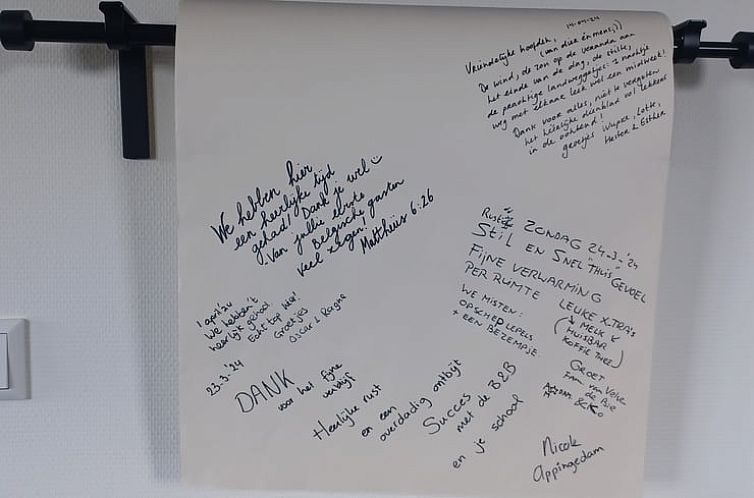 14-04-'24
Vriendelijke hoofden,
(van dier én mens,;))
De wind, de zon op de veranda aan
het einde van de dag, de stilte,
de prachtige landweggetjes: 1 nachtje
weg met elkaar leek wel een midweek!
Dank voor alles, niet te vergeten
het heerlijke dienblad vol lekkers
in de ochtend!
groetjes Wupke, Lotte,
Hester & Esther
We hebben hier
een heerlijke tijd
gehad! Dank je wel
Van jullie eerste
Belgische gasten
Veel zegen!
Mattheüs 6:26
ZONDAG 24-3-'24
STIL EN SNEL "THUIS" GEVOEL
FIJNE VERWARMING
PER RUIMTE
LEUKE XTRA'S
(↳ MELK &
HUISBAR
KOFFIE THEE)
WE MISTEN:
OPSCHEPLEPELS
+ EEN BEZEMPJE
GROET
FAM van Velze
de Boe
1 april '24
We hebben 't
heerlijk gehad.
Echt top hier!
Groetjes
Oscar & Ragna
23-3-'24
DANK
voor het fijne
verblijf
Heerlijke rust
en een
overdadig ontbijt
Succes
met de B&B
en je school
Nicole
Appingedam